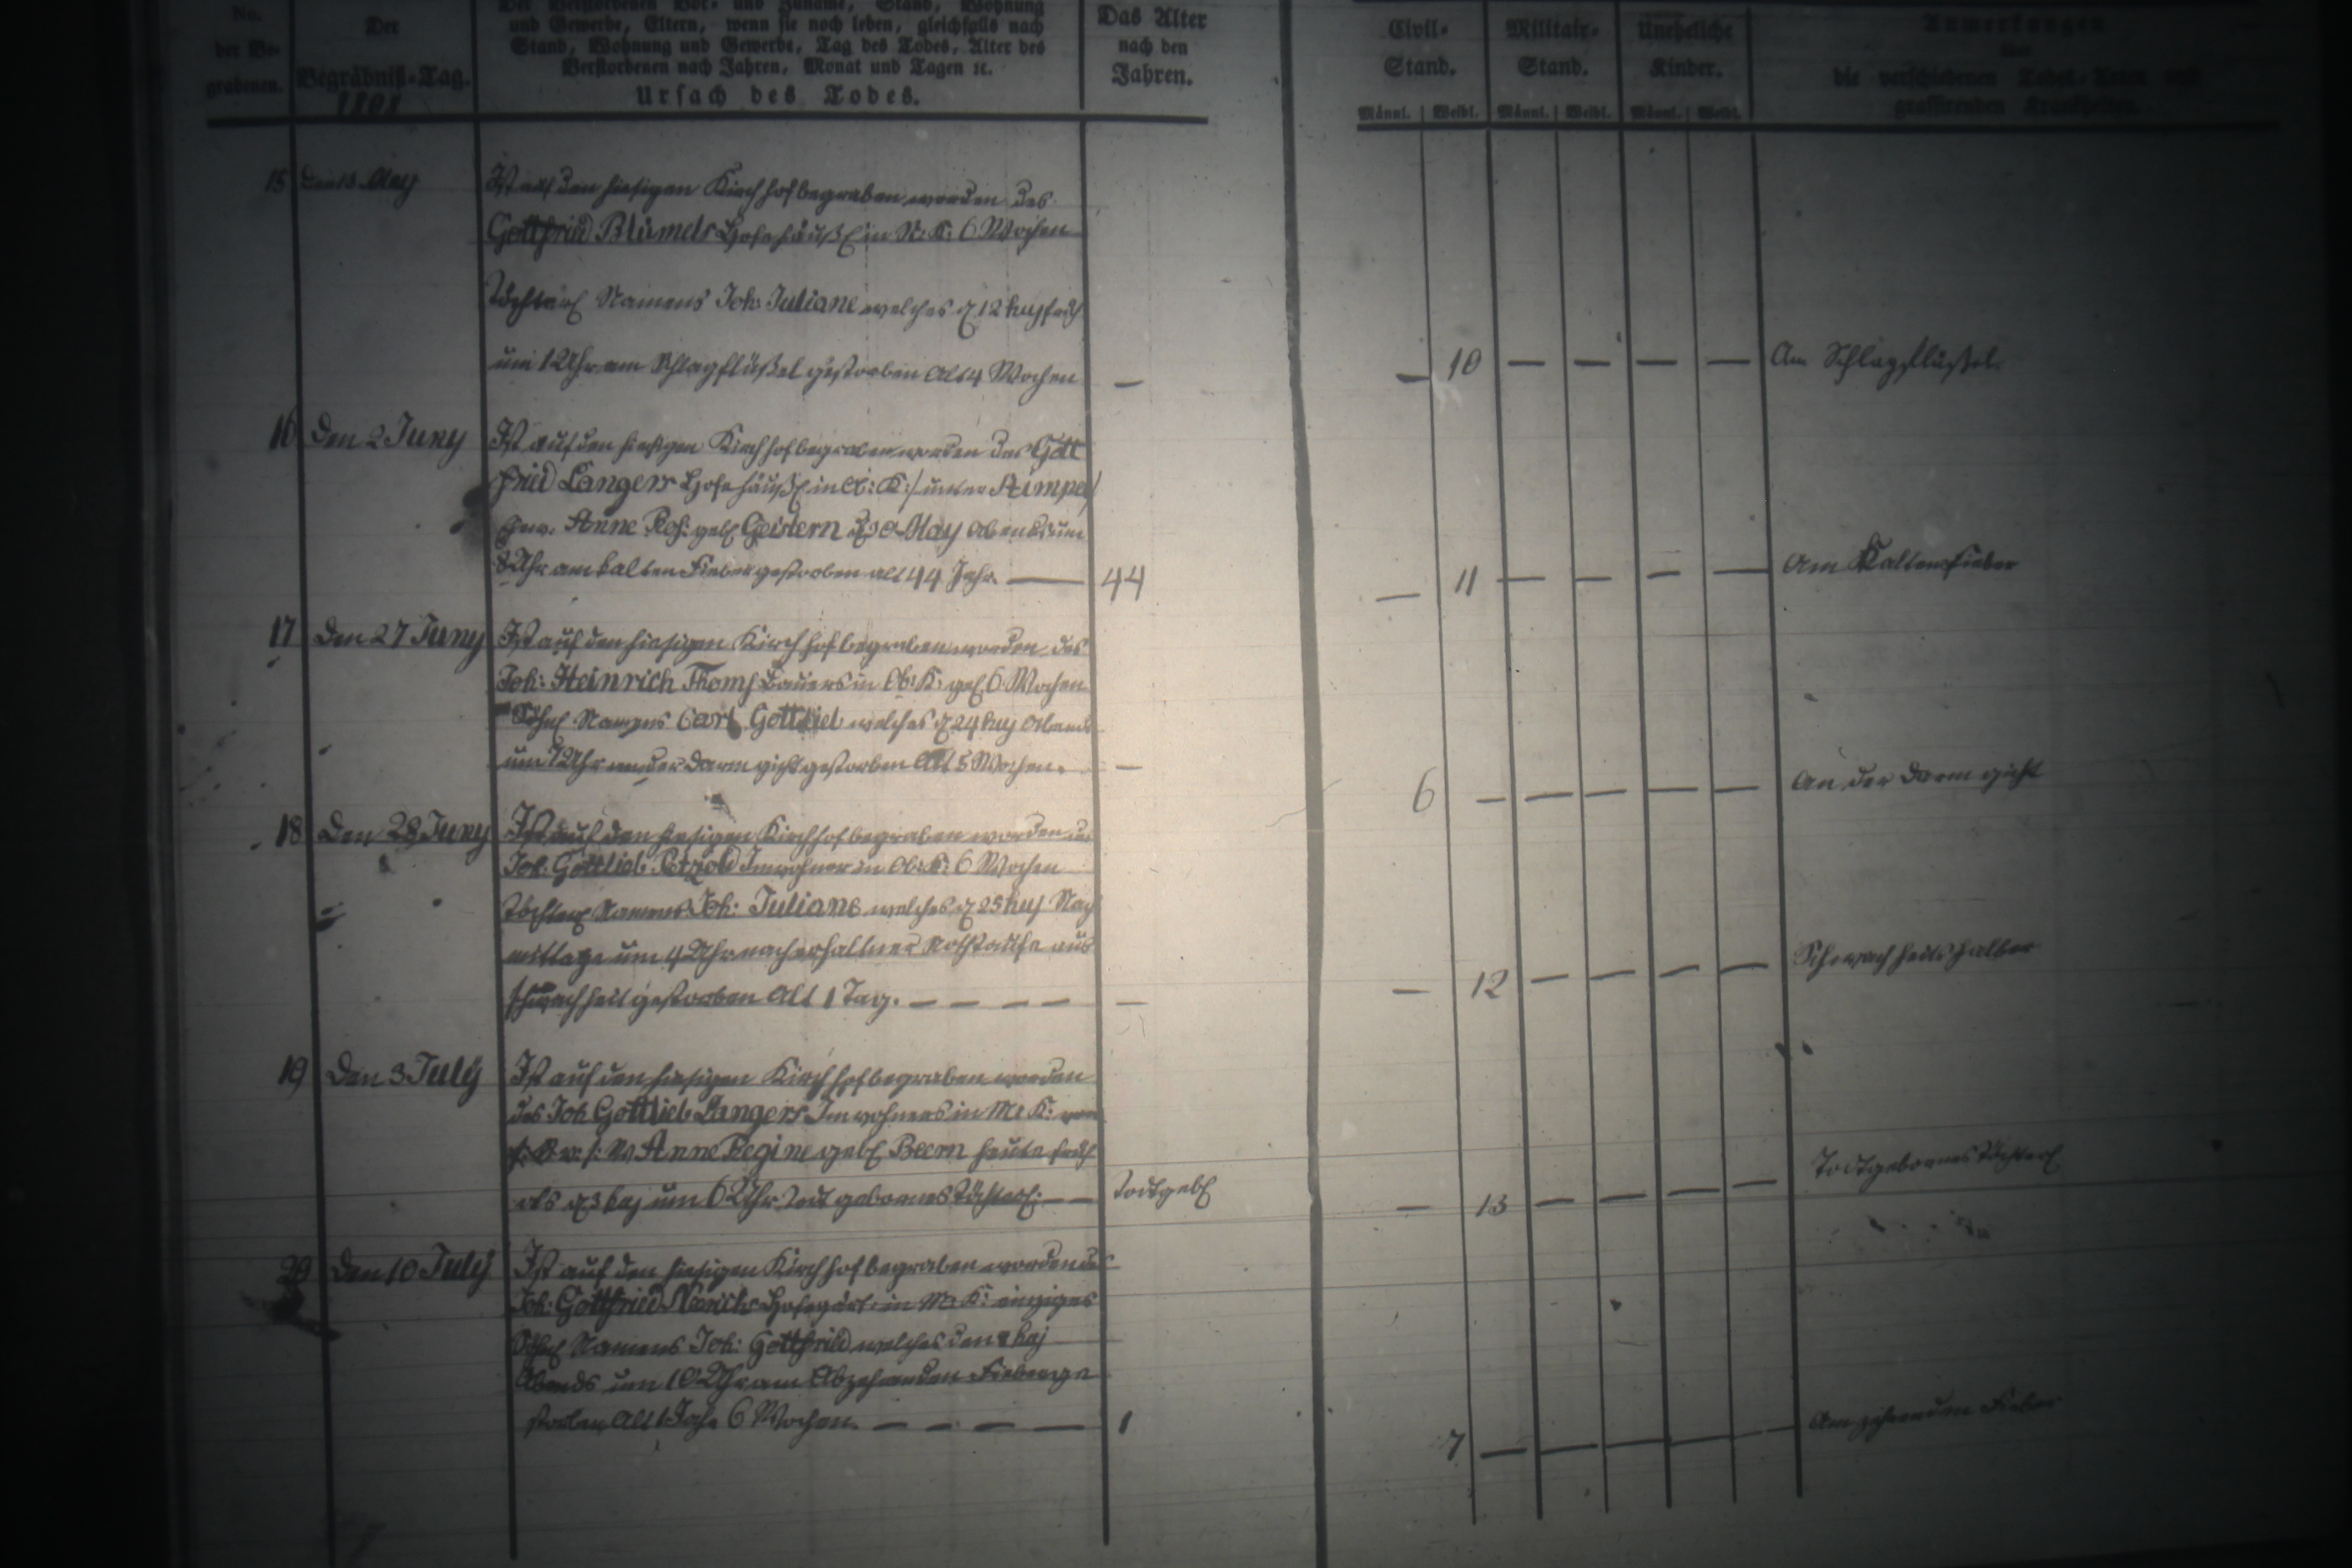 No. der Be-grabenen.
Der Begräbniß-Tag.
Der Verstorbenen Vor- und Zuname, Stand, Wohnung
und Gewerbe, Eltern, wenn sie noch leben, gleichfalls nach
Stand, Wohnung und Gewerbe, Tag des Todes, Alter des
Verstorbenen nach Jahren, Monat und Tagen ꝛc.
Ursach des Todes.
Das Alter
nach den
Jahren.
Civil-Stand.
Militair-Stand.
Uneheliche Kinder.
Männl. Weibl. Männl. Weibl. Männl. Weibl.
Anmerkungen
über
die verschiedenen Todes-Arten und
grassirenden Krankheiten.
15 May
Ist auf den hiesigen Kirchhof begraben worden des
Gottfried Blümels Hofehäußl in N. K: 6 Wochen
Töchterl Namens Joh: Juliane welches d 12 huj früh
um 1 Uhr am Schlagflüßel gestorben Alt 4 Wochen —
— 10 — — — — Am Schlagflüßel.
16 Den 2 Juny
Ist auf den hiesigen Kirchhof begraben worden des Gott
fried Langers Hofehäußl in Ob: K:
Anne Ros: geb Geislern d 30 May Abends um
8 Uhr am kalten Fieber gestorben alt 44 Jahr. — 44
— 11 — — — — Am Kalten Fieber
17 Den 27 Juny
Ist auf den hiesigen Kirchhof begraben worden des
Joh: Heinrich Thoms Bauers in Ob: K: 6 Wochen
Söhnl Namens Carl Gottlieb welches d 24 huj Abends
um 7 Uhr an der Darmgicht gestorben Alt 5 Wochen. —
6 — — — — — An der Darmgicht
18 Den 28 Juny
Ist auf den hiesigen Kirchhof begraben worden des
Joh: Gottlieb Inwohner in Ob: K: 6 Wochen
Töchterl Namens Joh: Juliane welches d 25 huj Nach
mittags um 4 Uhr nach erhaltner Nothtaufe aus
schwachheit gestorben Alt 1 Tag. — — — — —
— 12 — — — — Schwachheitshalber
19 Den 3 July
Ist auf den hiesigen Kirchhof begraben worden
des Joh Gottlieb Langers Inwohners in M: K: von
Anne Regine geb Beern heute früh
als d 3 huj um 6 Uhr Todtgebornes Töchterl: — — Todtgeb
— 13 — — — — Todtgebornes Töchterl
20 Den 10 July
Ist auf den hiesigen Kirchhof begraben worden des
Joh: Gottfried Hofegärt: in M: K: einziges
Söhnl Namens Joh: Gottfried welches den huj
Abends um 10 Uhr am Abzehrenden Fieber ge
storben Alt 1 Jahr 6 Wochen. — — — — 1
7 — — — — — Am zehrenden Fieber